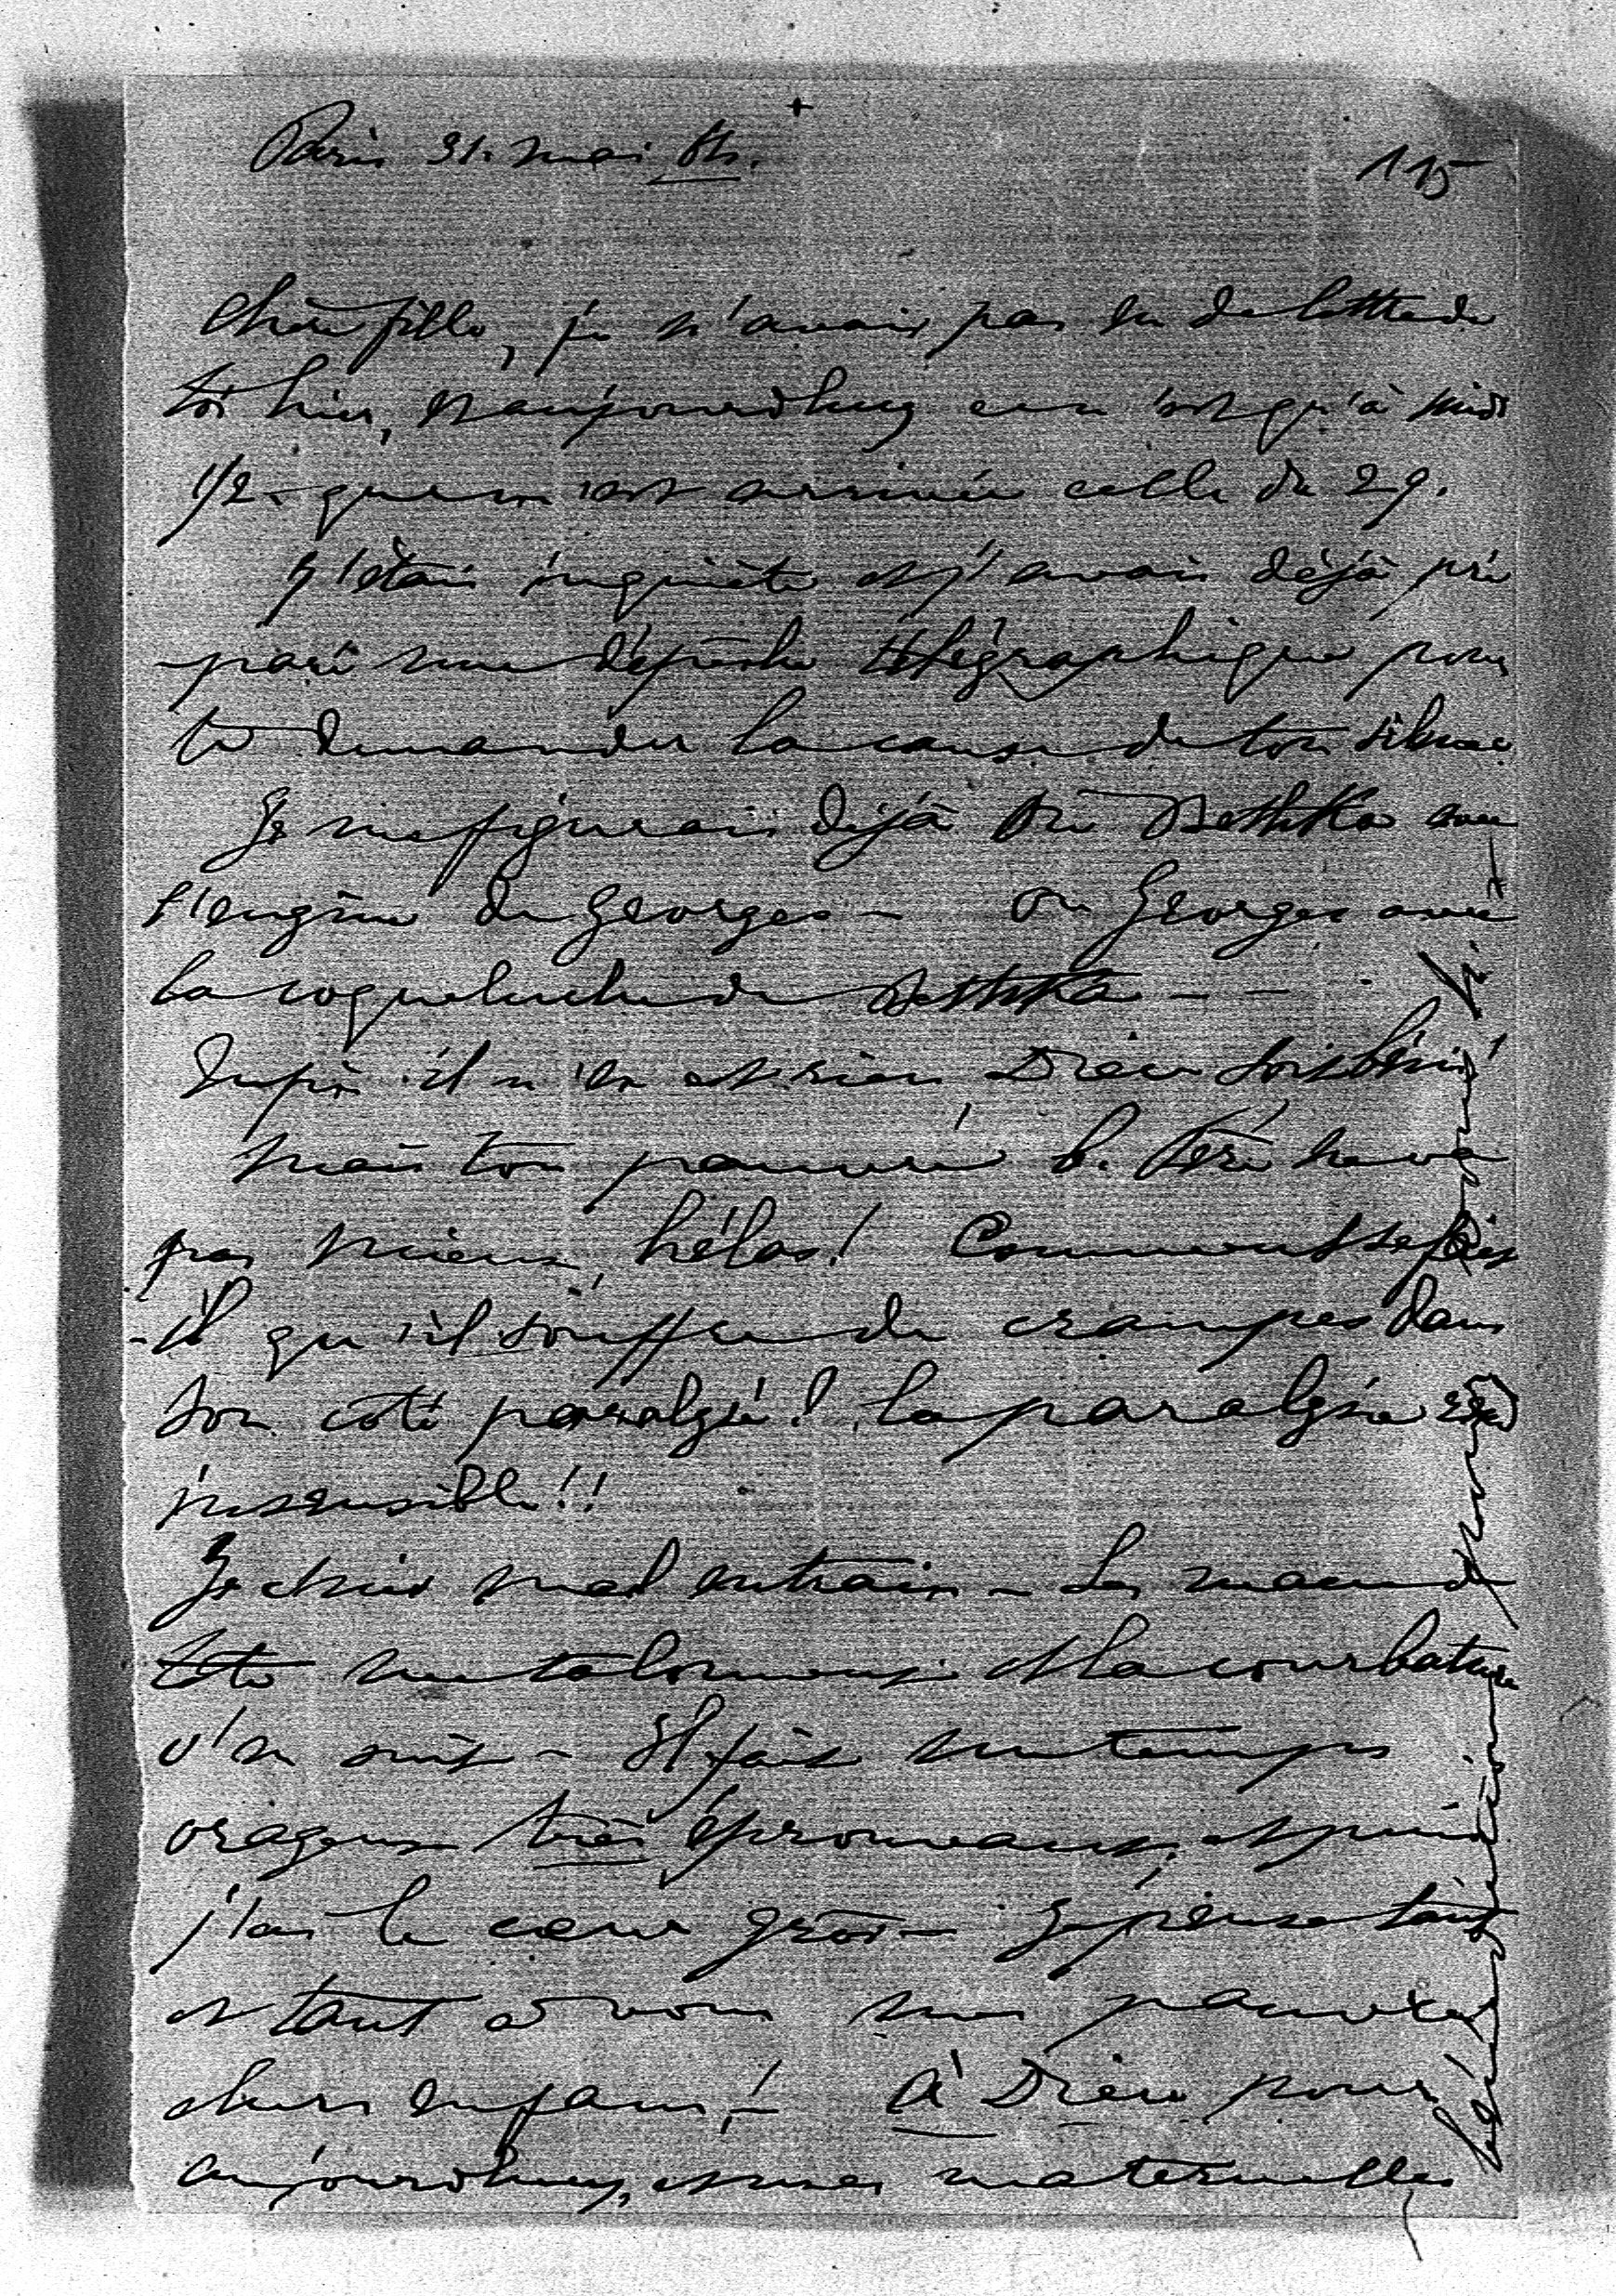 Paris 31. mai
115
Chère fille, je n'avais pas eu de lettre de
toi hier, et aujourdhuy ce n'est qu'à midi
1/2 - que m'est arrivée celle du 29.
J'étais inquiète et j'avais déjà pré
-paré une dépêche télégraphique pour
te demander la cause de ton silence
Je me figurais déjà ou Bethka avec
l'engine de Georges - ou Georges avec
la coqueluche de Bethka - -
Enfin il n'en est rien Dieu soit béni!
Mais ton pauvre b. Père ne va
pas mieux, hélas! Comment se fait
-il qu'il souffre de crampes dans
son côté paralysé! la paralysie est
insensible!!
Je suis mal entrain - Les maux de
tête me talonnent et la courbature
s'en suit - Il fait un temps
orageux très éprouvant, et puis
j'ai le cœur gros - Je pense tant
et tant à vous mes pauvres
chers enfans! - à Dieu pour
aujourdhuy, et mes maternelles